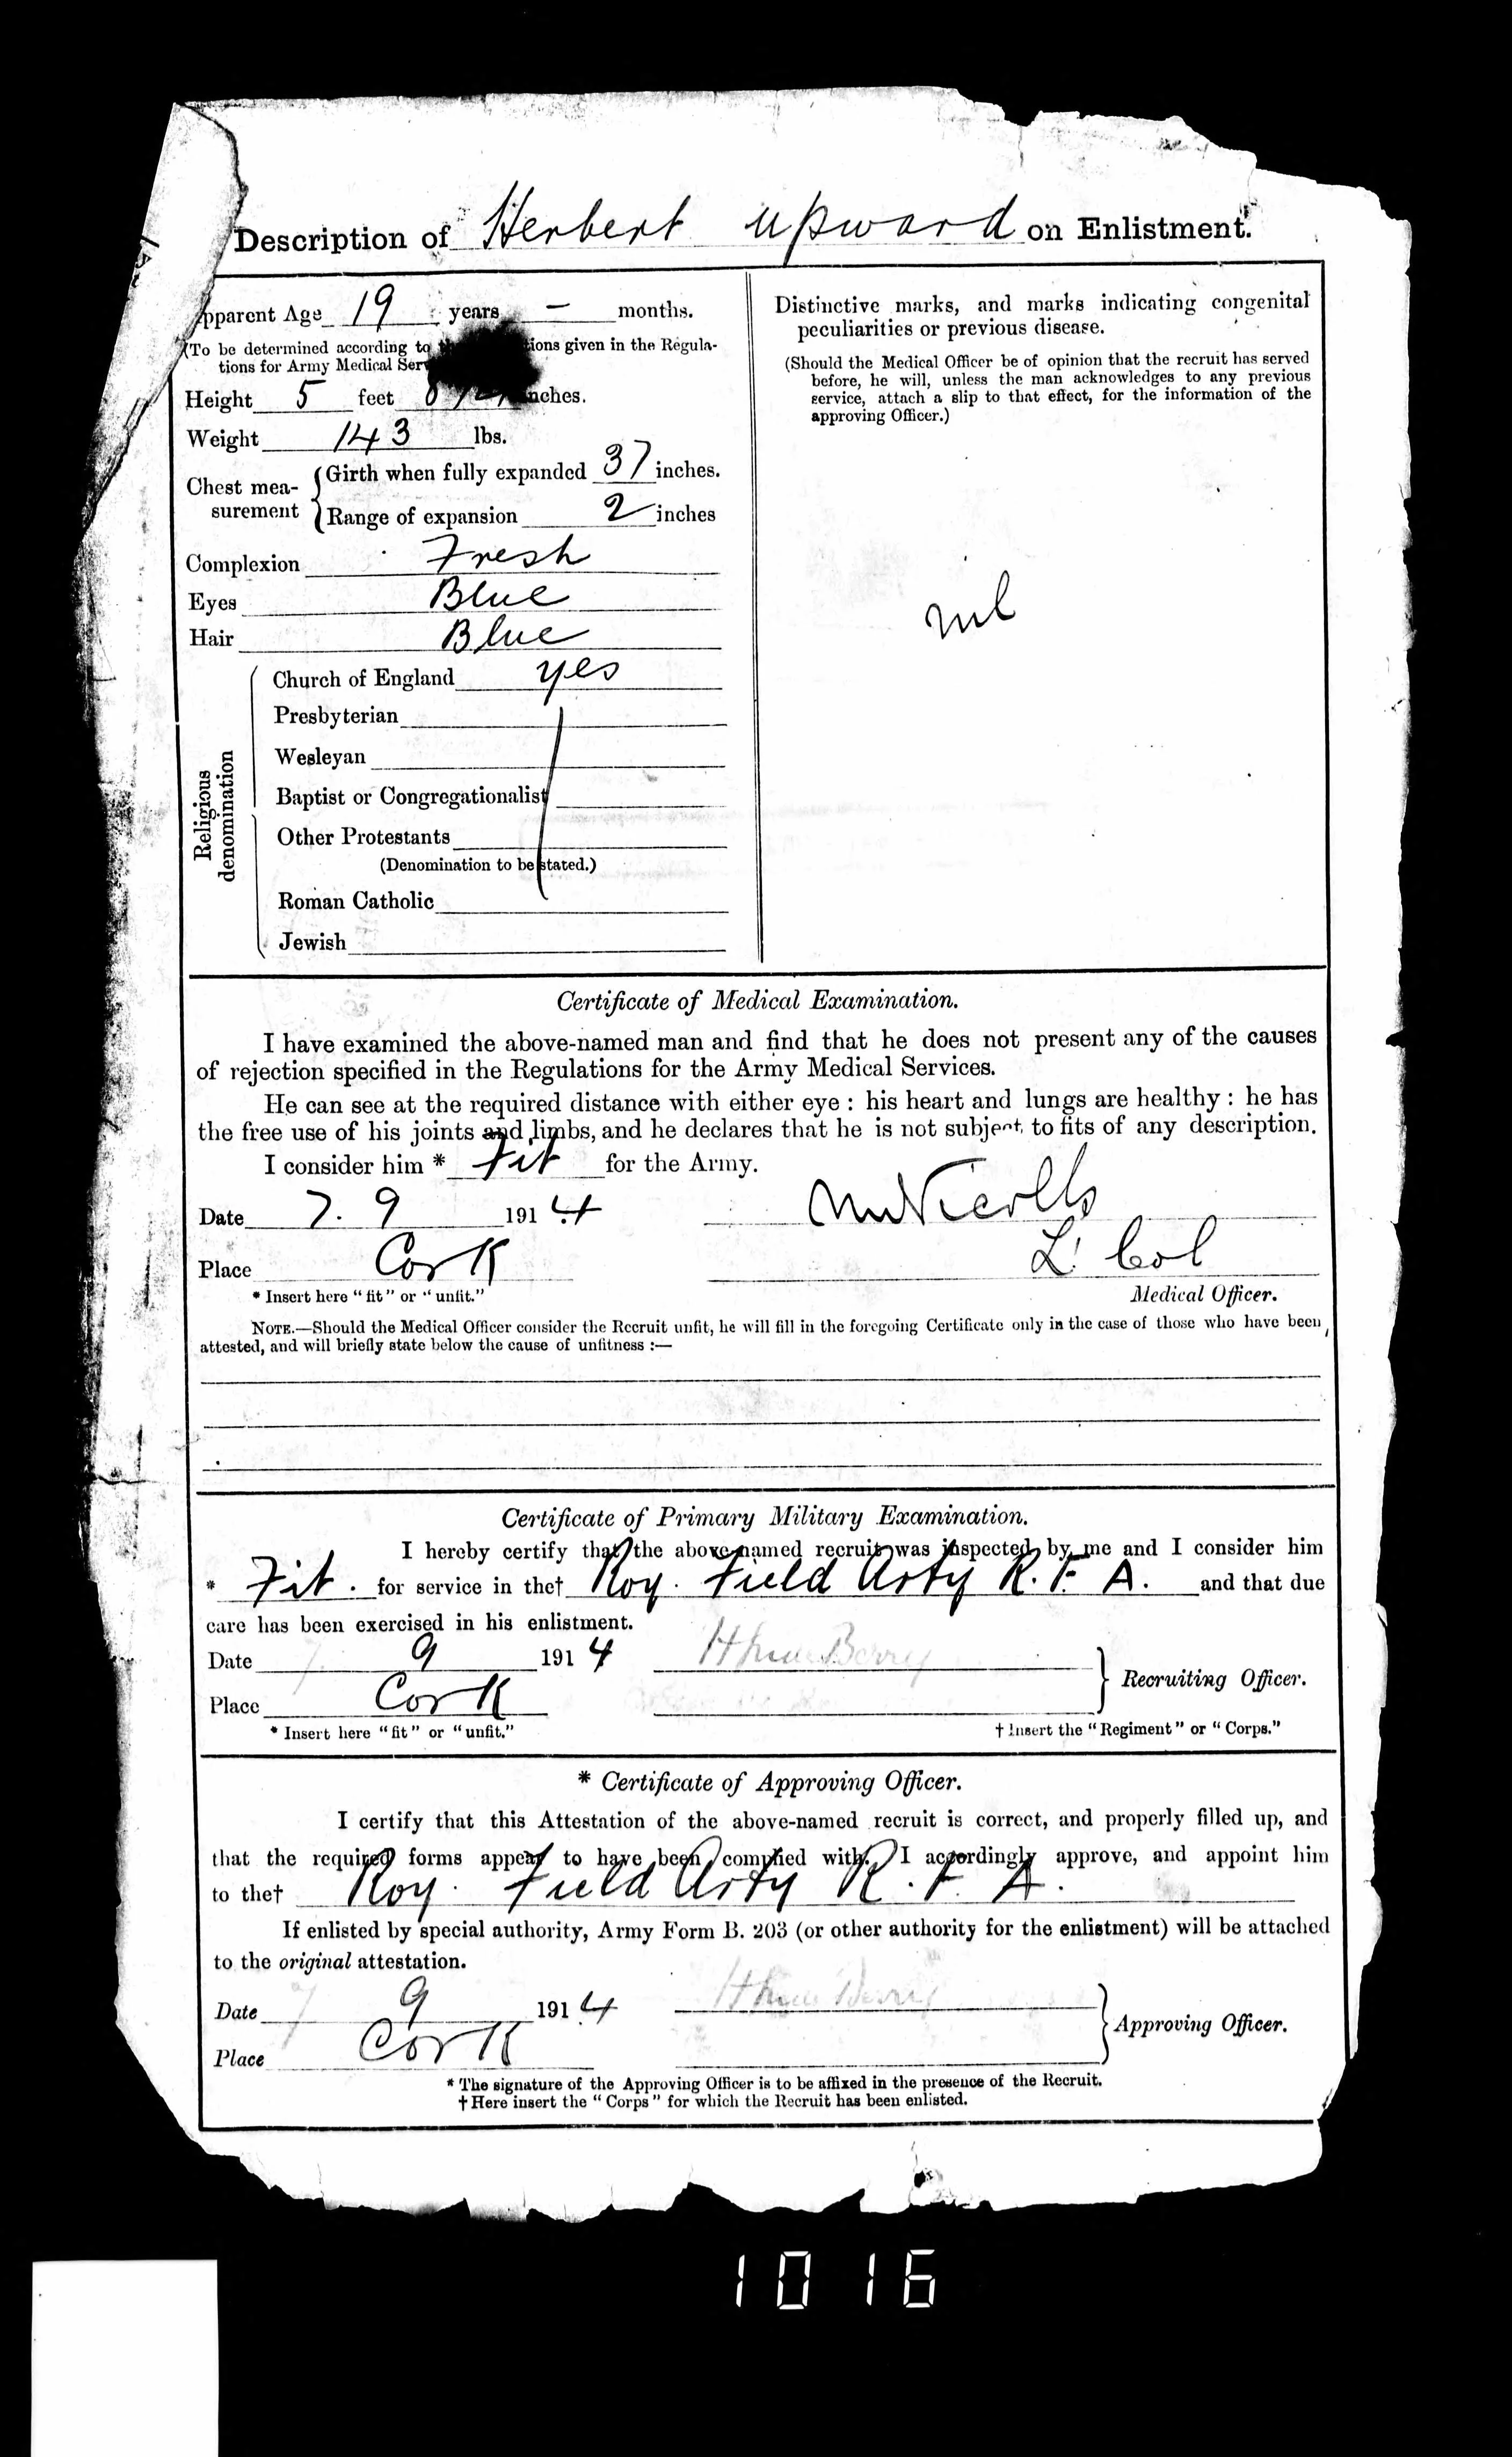 Description of Herbert Upward on Enlistment.
pparent Age 19 years — months.
(To be determined according to tions given in the Regula-
tions for Army Medical Ser
Height 5 feet 8 nches.
Weight 143 lbs.
Chest mea-
surement
Girth when fully expanded 37 inches.
Range of expansion 2 inches
Complexion Fresh
Eyes Blue
Hair Blue
Religious
denomination
Church of England yes
Presbyterian
Wesleyan
Baptist or Congregationalist
Other Protestants
(Denomination to be stated.)
Roman Catholic
Jewish
Distinctive marks, and marks indicating congenital
peculiarities or previous disease.
(Should the Medical Officer be of opinion that the recruit has served
before, he will, unless the man acknowledges to any previous
service, attach a slip to that effect, for the information of the
approving Officer.)
nil
Certificate of Medical Examination.
I have examined the above-named man and find that he does not present any of the causes
of rejection specified in the Regulations for the Army Medical Services.
He can see at the required distance with either eye : his heart and lungs are healthy : he has
the free use of his joints and limbs, and he declares that he is not subject to fits of any description.
I consider him * Fit for the Army.
Date 7. 9 1914
Place Cork
Lt Col
* Insert here "fit" or "unfit."
Medical Officer.
NOTE.—Should the Medical Officer consider the Recruit unfit, he will fill in the foregoing Certificate only in the case of those who have been
attested, and will briefly state below the cause of unfitness :—
Certificate of Primary Military Examination.
I hereby certify that the above-named recruit was inspected by me and I consider him
* Fit. for service in the† Roy. Field Arty R.F.A. and that due
care has been exercised in his enlistment.
Date 7 9 1914 Berry
Recruiting Officer.
Place Cork
* Insert here "fit" or "unfit."
† Insert the "Regiment" or "Corps."
* Certificate of Approving Officer.
I certify that this Attestation of the above-named recruit is correct, and properly filled up, and
that the required forms appear to have been complied with. I accordingly approve, and appoint him
to the† Roy. Field Arty R.F.A.
If enlisted by special authority, Army Form B. 203 (or other authority for the enlistment) will be attached
to the original attestation.
Date 7 9 1914 Berry
Approving Officer.
Place Cork
* The signature of the Approving Officer is to be affixed in the presence of the Recruit.
† Here insert the "Corps" for which the Recruit has been enlisted.
1016